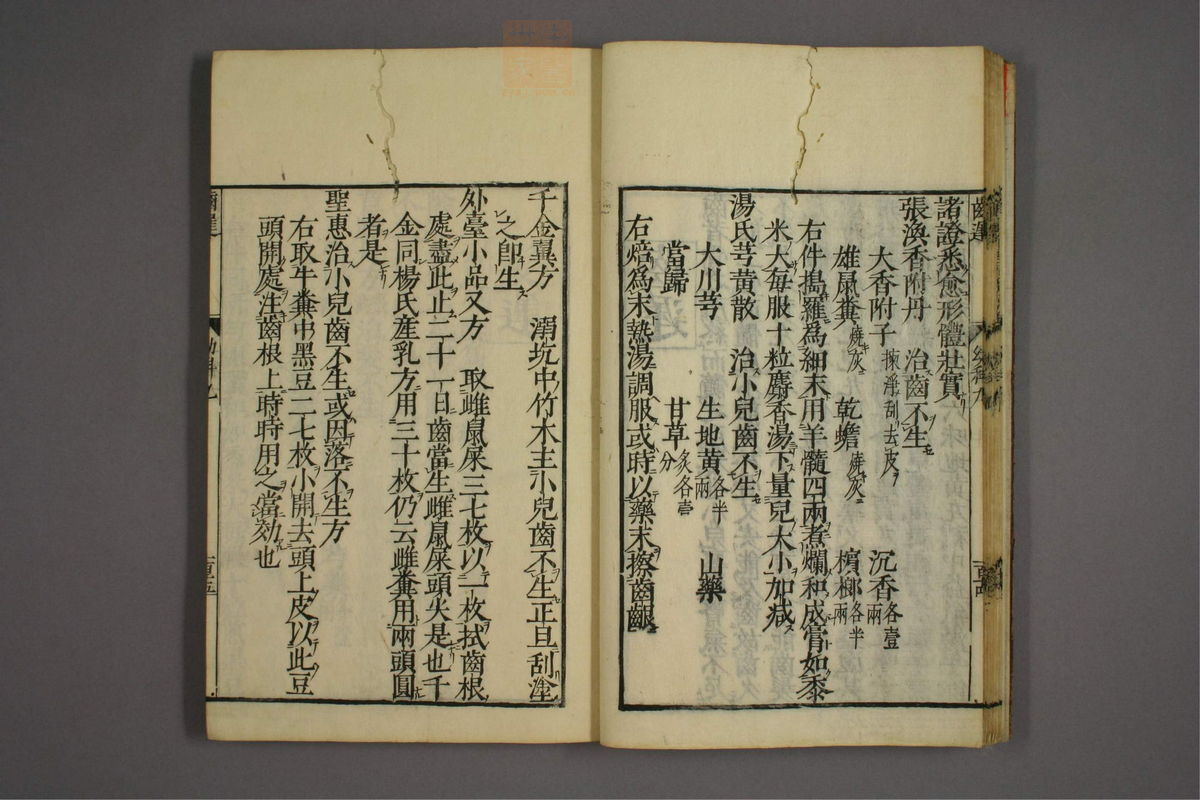 諸證悉愈形體壯實
張渙香附丹 治齒不生
大香附子揀淨刮去皮 沉香各壹兩
雄鼠糞燒灰 乾蟾燒灰 檳榔各半兩
右件搗羅爲細末用羊髓四兩煮爛和成膏如黍
米大每服十粒麝香湯下量兒大小加减
湯氏芎黃散 治小兒齒不生
大川芎 生地黃各半兩 山藥
當歸 甘草炙各壹分
右焙爲末熱湯調服或時以藥末擦齒齦
千金翼方 溷坑中竹木主小兒齒不生正旦刮塗
之卽生
外臺小品又方 取雌鼠屎三七枚以一枚拭齒根
處盡此止二十一日齒當生雌鼠屎頭尖是也千
金同楊氏產乳方用三十枚仍云雌糞用兩頭圓
者是
聖惠治小兒齒不生或因落不生方
右取牛糞中黑豆二七枚小開去頭上皮以此豆
頭開處注齒根上時時用之當効也